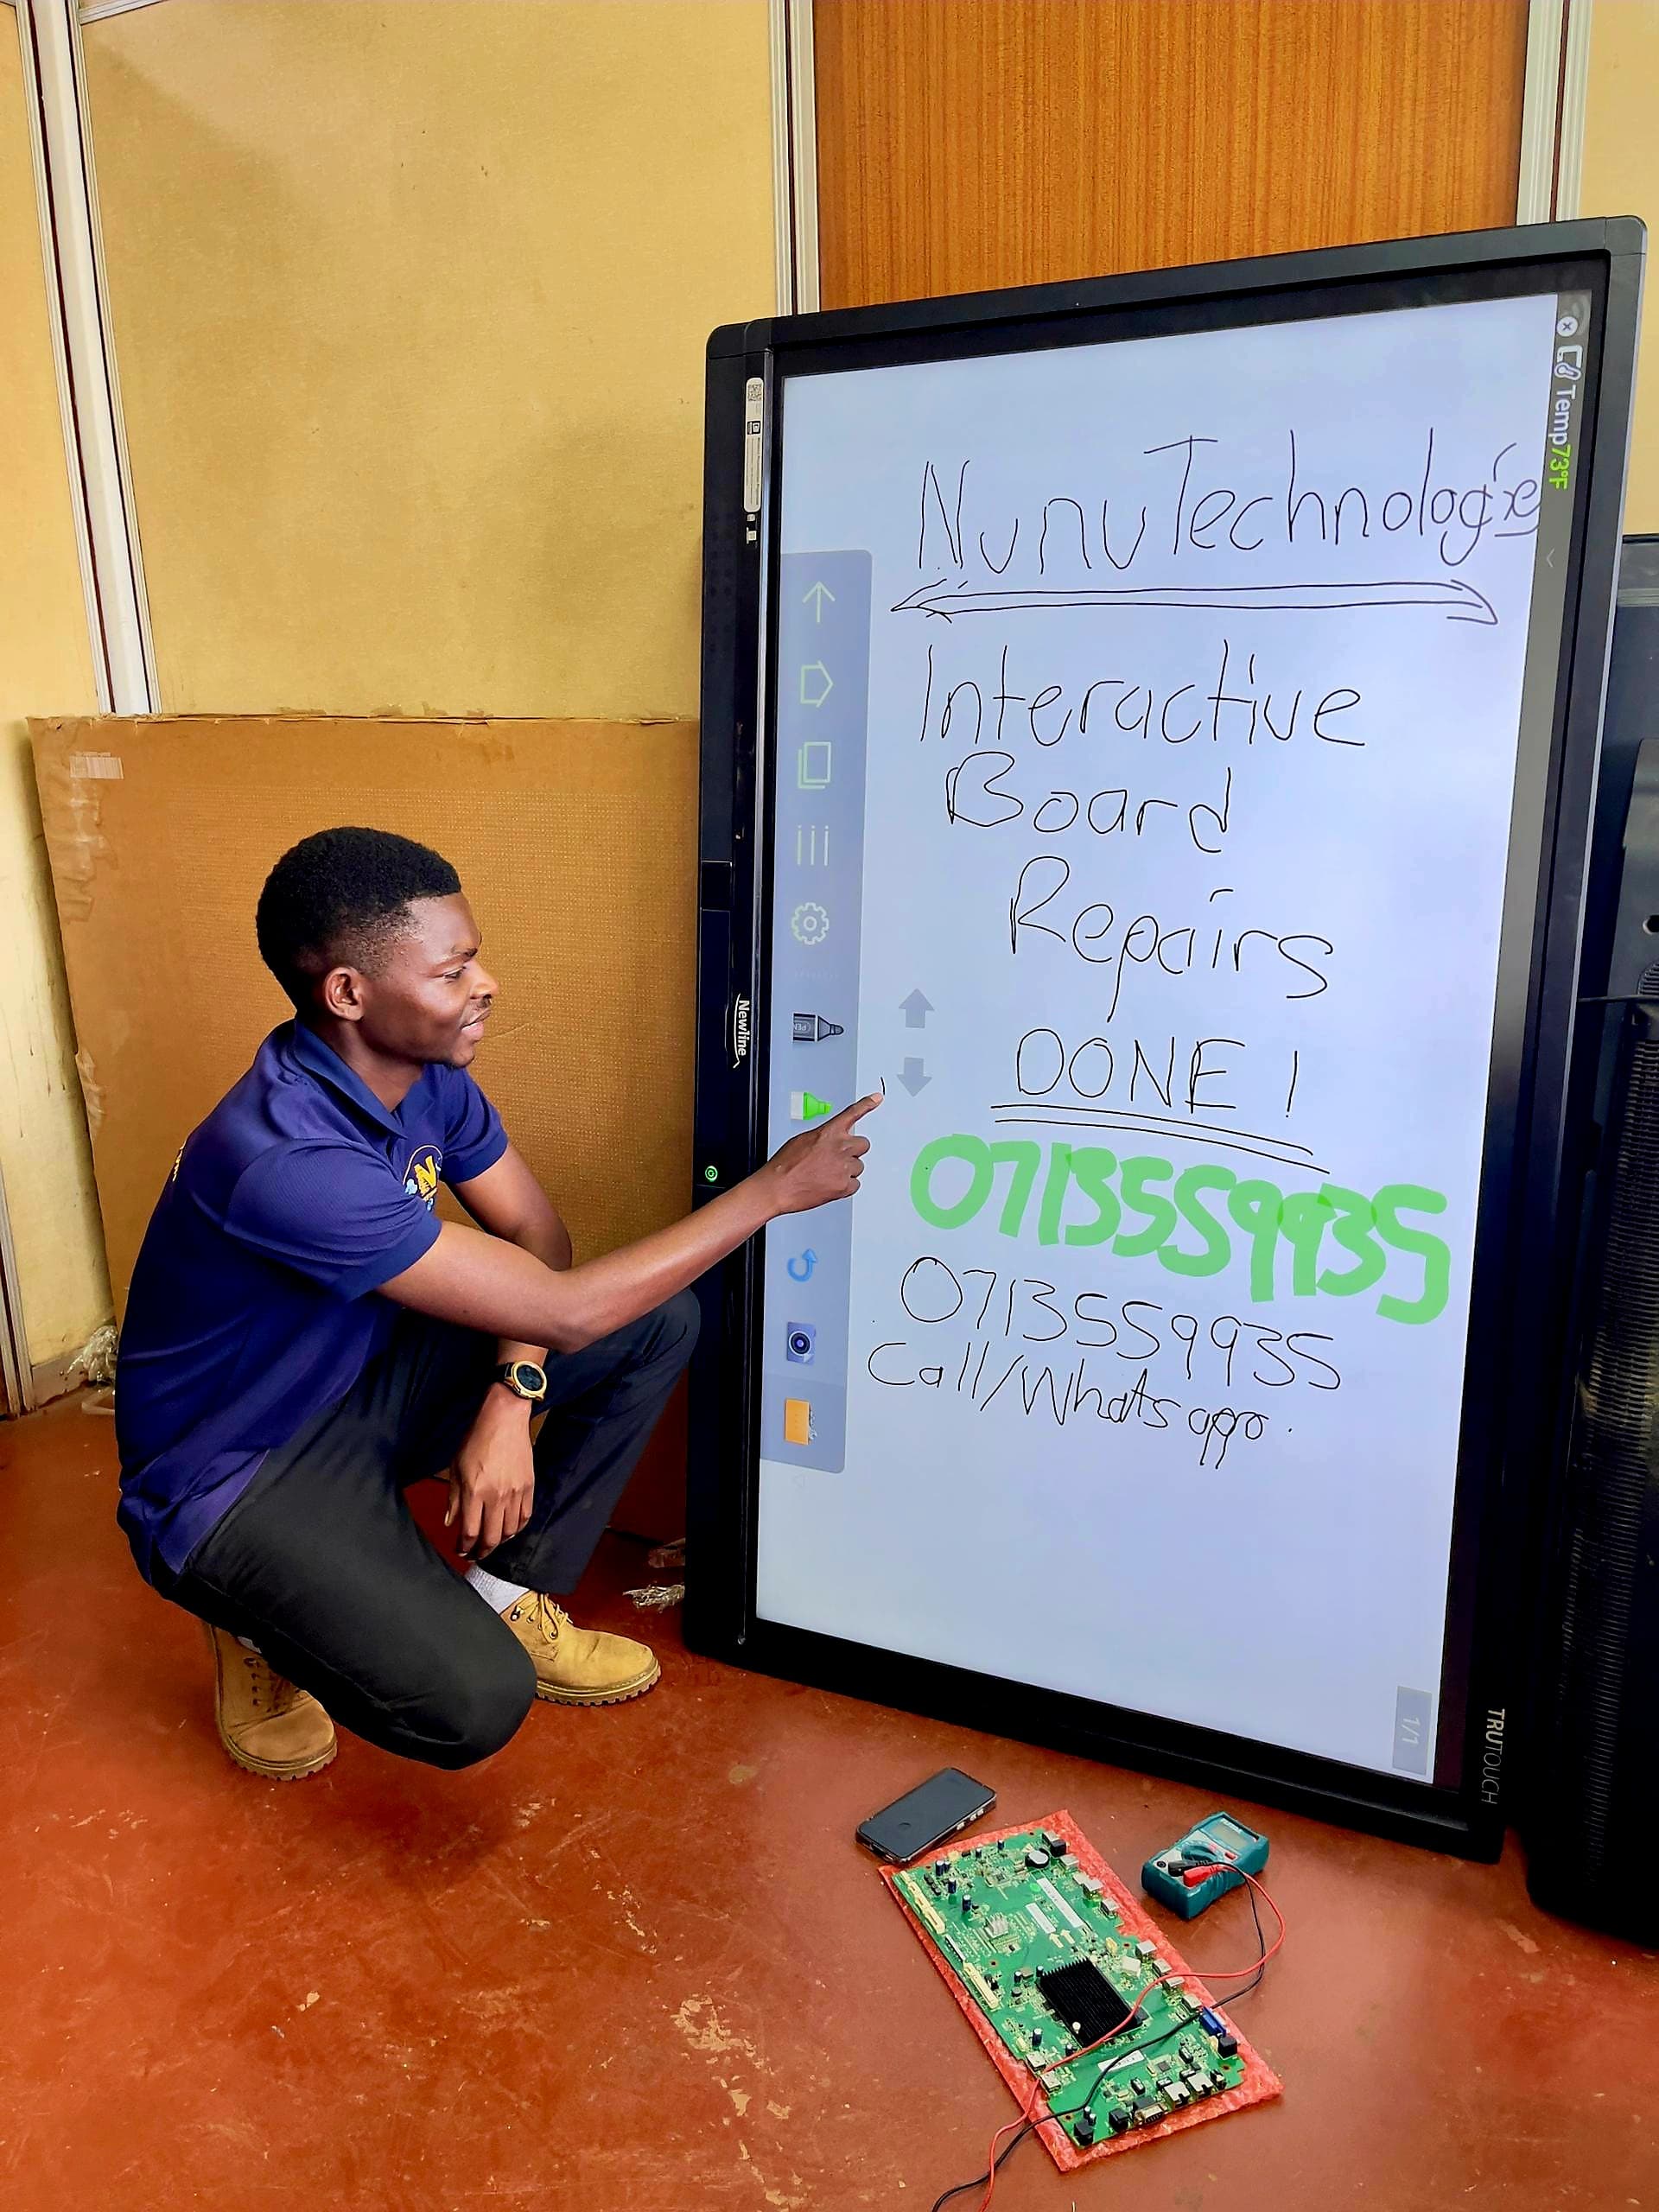 Temp73°F
NunuTechnologies
Interactive
Board
Repairs
DONE!
0713559935
0713559935
Call/Whatsapp.
Newline
PEN
N
1/1
TRUTOUCH